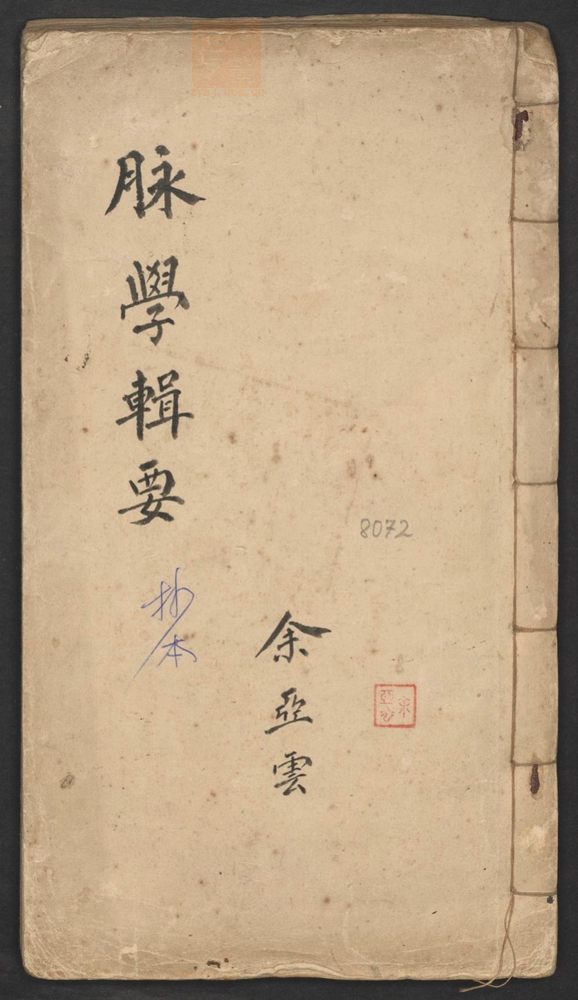 脉學輯要
抄本
8072
余亞雲